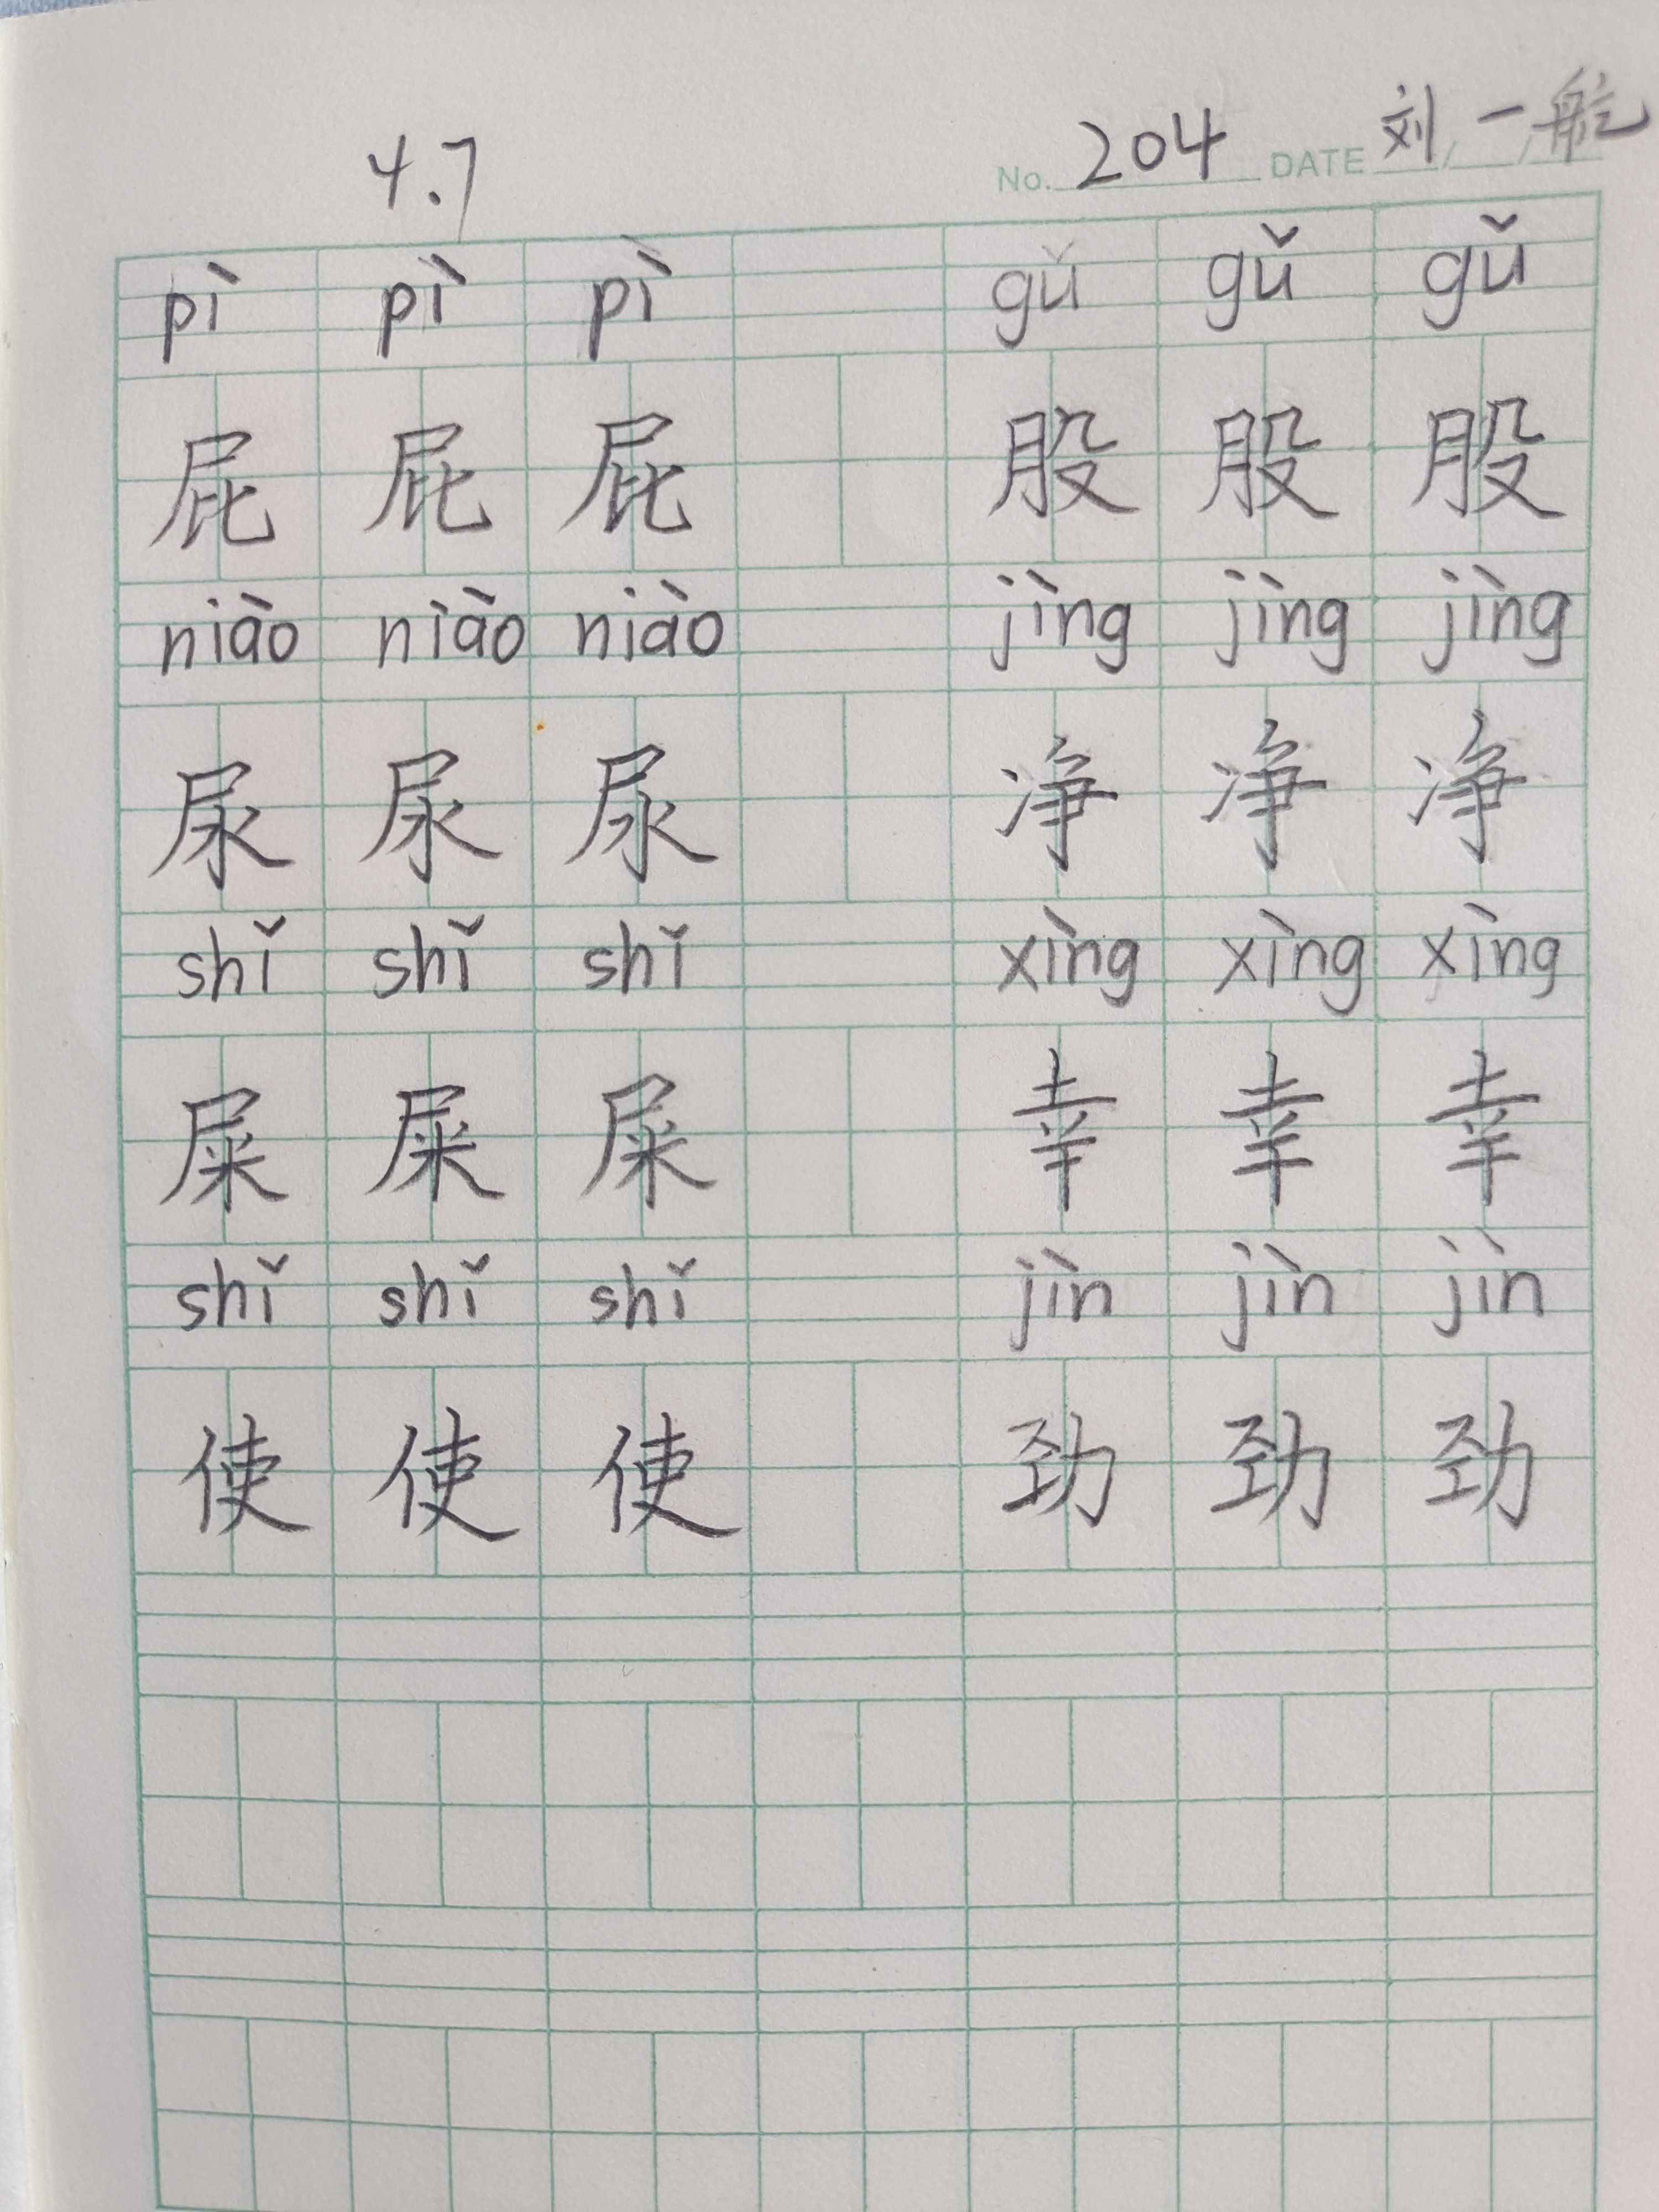 4.7 No. 204 DATE 刘一航
pì pì pì gǔ gǔ gǔ
屁 屁 屁 股 股 股
niào niào niào jìng jìng jìng
尿 尿 尿 净 净 净
shǐ shǐ shǐ xìng xìng xìng
屎 屎 屎 幸 幸 幸
shǐ shǐ shǐ jìn jìn jìn
使 使 使 劲 劲 劲